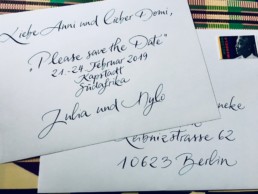 Liebe Anni und lieber Domi,
„Please save the Date“
21-24. Februar 2019
Kapstadt
Südafrika
Julia und Mylo
Leibnizstrasse 62
10623 Berlin